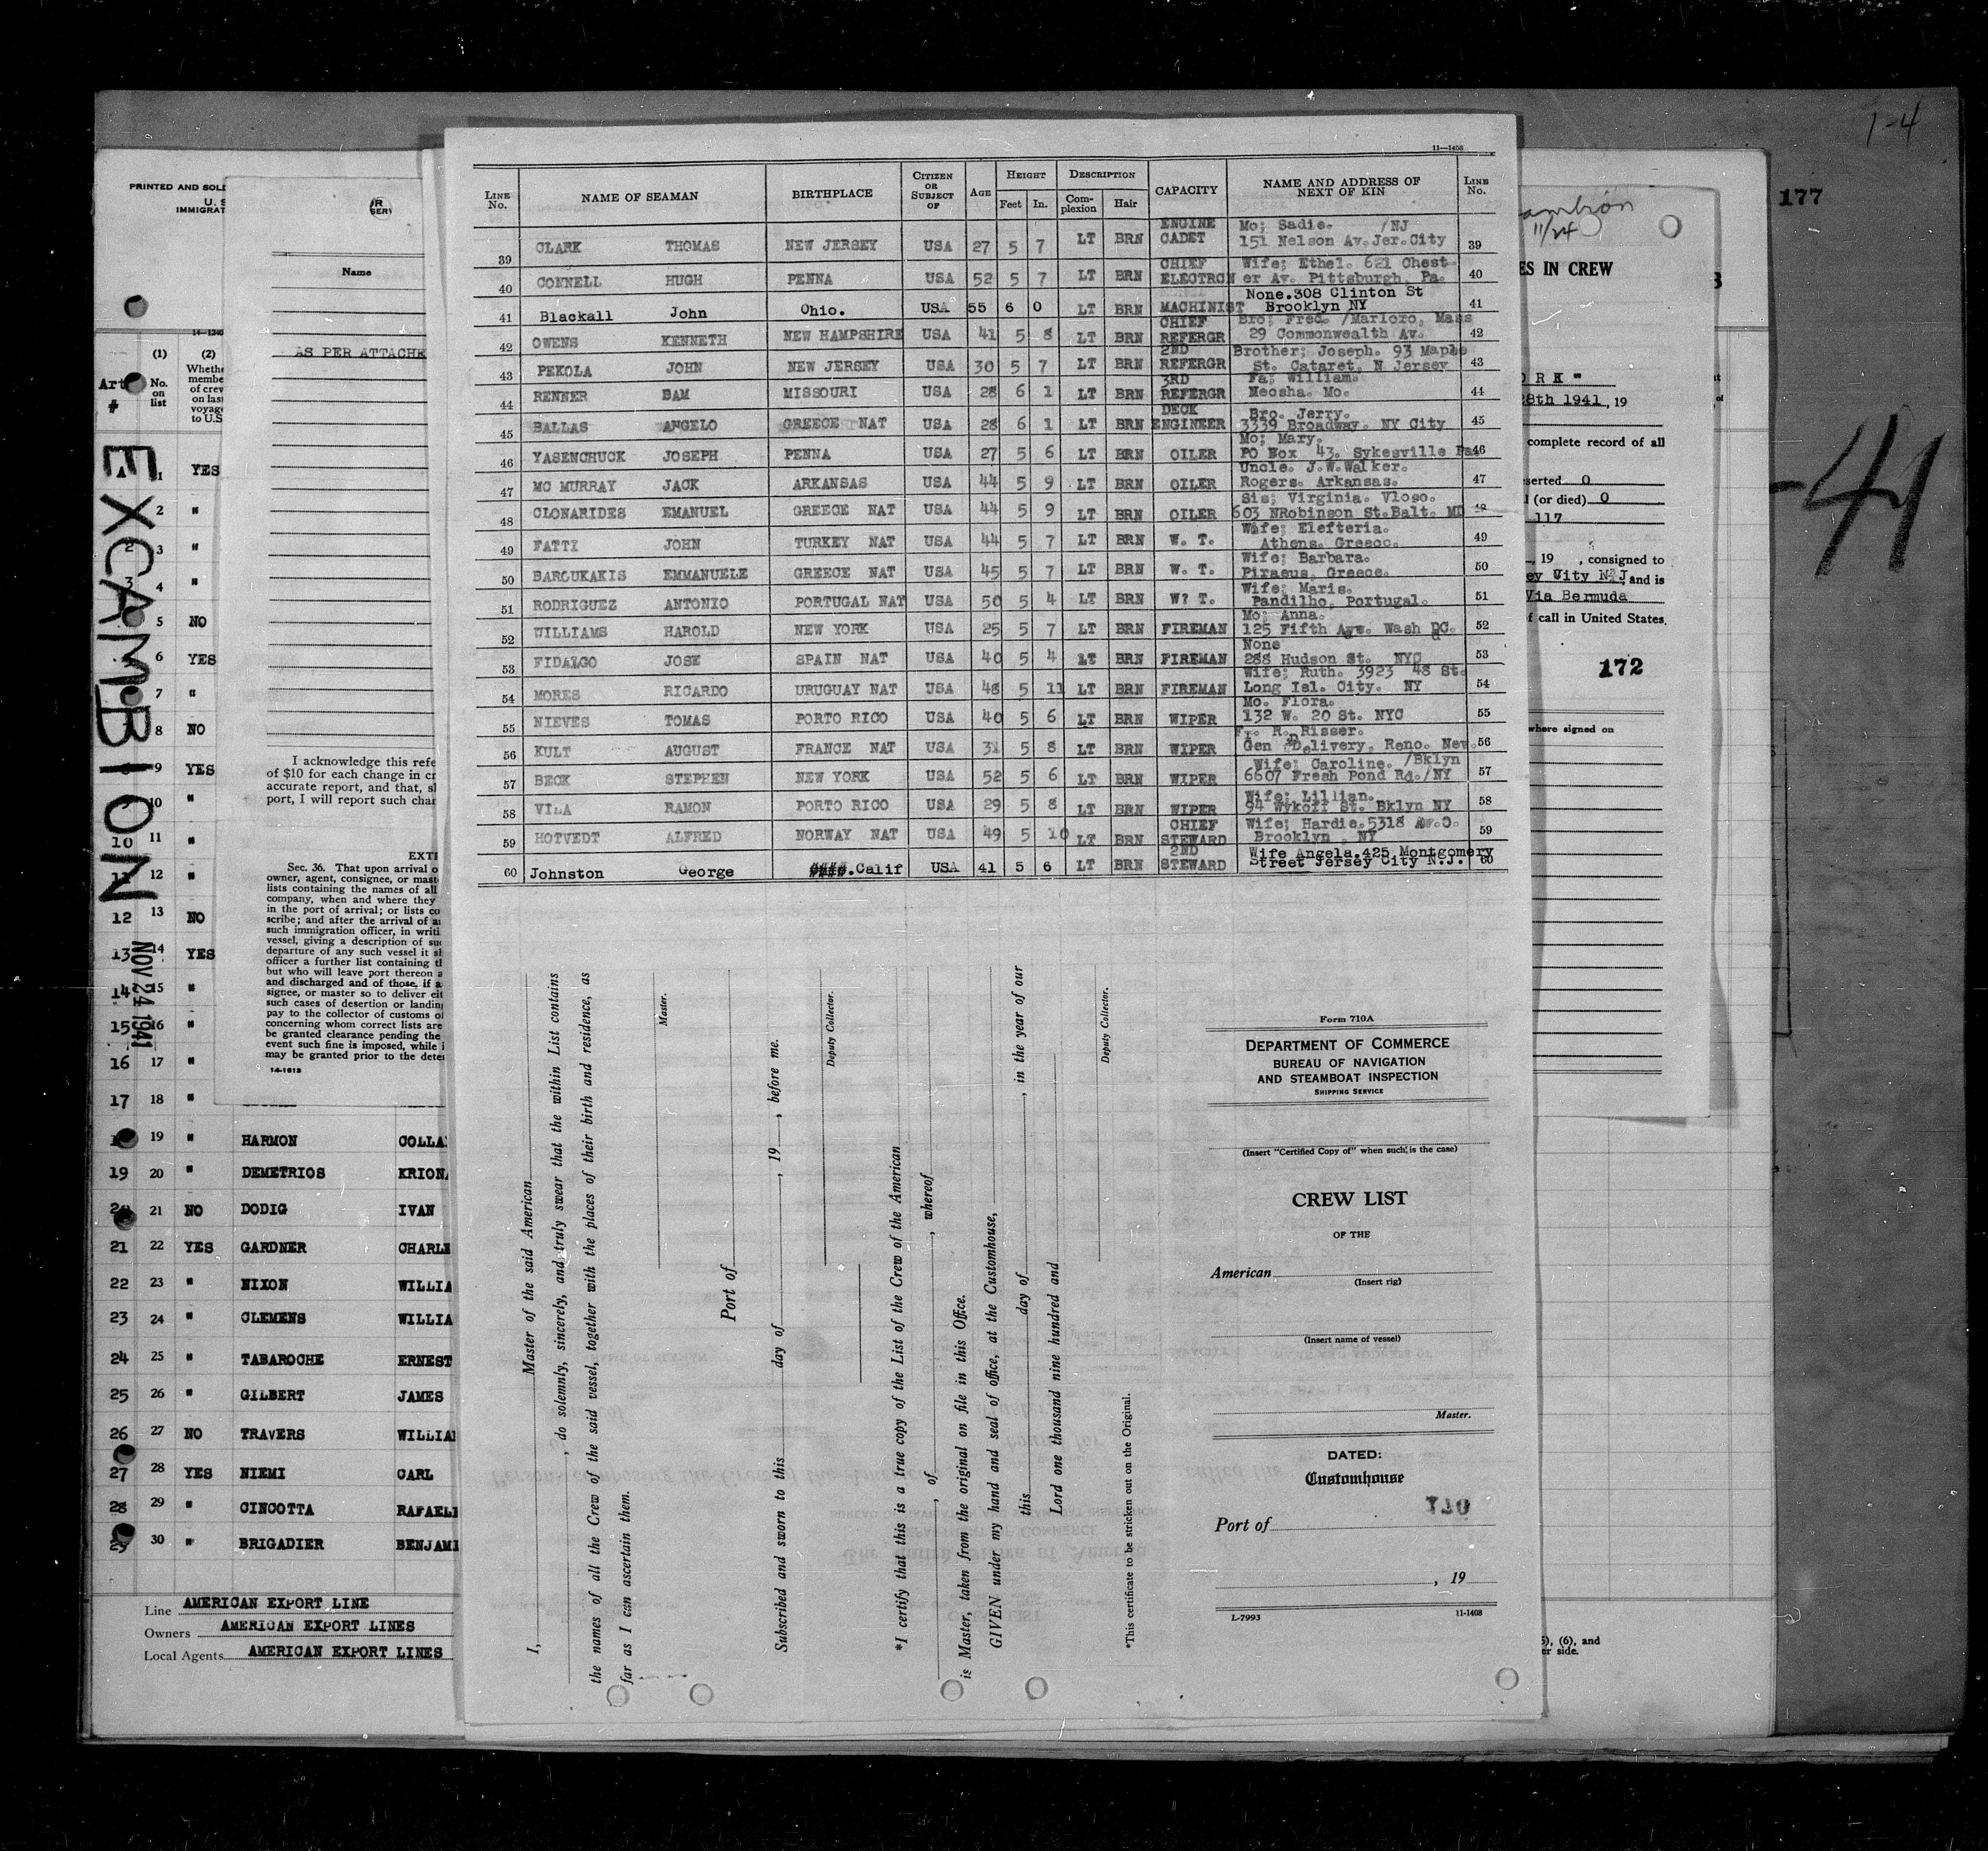 1-4
177
-41
EXCAMBION
NOV 24 1941
PRINTED AND SOLD
U. S
IMMIGRAT
14-1240
Art
#
(1)
No.
on
list
(2)
Whethe
membe
of crew
on last
voyage
to U.S
1 YES
2 "
2 3 "
3 4 "
5 NO
6 YES
7 "
8 NO
9 YES
10 "
10 11 "
12 "
12 13 NO
13 14 YES
14 15 "
15 16 "
16 17 "
17 18 "
19 " HARMON COLLA
19 20 " DEMETRIOS KRION
20 21 NO DODIG IVAN
21 22 YES GARDNER CHARLE
22 23 " NIXON WILLIA
23 24 " CLEMENS WILLIA
24 25 " TABAROCHE ERNEST
25 26 " GILBERT JAMES
26 27 NO TRAVERS WILLIA
27 28 YES NIEMI CARL
28 29 " CINCOTTA RAFAEL
29 30 " BRIGADIER BENJAMI
Line AMERICAN EXPORT LINE
Owners AMERICAN EXPORT LINES
Local Agents AMERICAN EXPORT LINES
Name
AS PER ATTACHE
I acknowledge this refe
of $10 for each change in cr
accurate report, and that, sl
port, I will report such char
EXTI
Sec. 36. That upon arrival o
owner, agent, consignee, or mast
lists containing the names of all
company, when and where they
in the port of arrival; or lists co
scribe; and after the arrival of a
such immigration officer, in writi
vessel, giving a description of suc
departure of any such vessel it sl
officer a further list containing tl
but who will leave port thereon a
and discharged and of those, if a
signee, or master so to deliver eit
such cases of desertion or landing
pay to the collector of customs of
concerning whom correct lists are
be granted clearance pending the
event such fine is imposed, while i
may be granted prior to the deter
14-1613
11—1408
LINE No. NAME OF SEAMAN BIRTHPLACE CITIZEN OR SUBJECT OF AGE HEIGHT Feet In. DESCRIPTION Complexion Hair CAPACITY NAME AND ADDRESS OF NEXT OF KIN LINE No.
39 CLARK THOMAS NEW JERSEY USA 27 5 7 LT BRN ENGINE CADET Mo; Sadie. /NJ 151 Nelson Av.Jer.City 39
40 CONNELL HUGH PENNA USA 52 5 7 LT BRN CHIEF ELECTRCN Wife; Ethel. 621 Chest- er Av. Pittsburgh. Pa. 40
41 Blackall John Ohio. USA 55 6 0 LT BRN MACHINIST None.308 Clinton St Brooklyn NY 41
42 OWENS KENNETH NEW HAMPSHIRE USA 41 5 8 LT BRN CHIEF REFERGR Bro; Fred. /Marloro, Mass 29 Commonwealth Av. 42
43 PEKOLA JOHN NEW JERSEY USA 30 5 7 LT BRN 2ND REFERGR Brother; Joseph. 93 Maple St. Cataret, N Jersey 43
44 RENNER BAM MISSOURI USA 28 6 1 LT BRN 3RD REFERGR Fa; William. Neosha. Mo. 44
45 BALLAS ANGELO GREECE NAT USA 28 6 1 LT BRN DECK ENGINEER Bro. Jerry. 3339 Broadway. NY City 45
46 YASENCHUCK JOSEPH PENNA USA 27 5 6 LT BRN OILER Mo; Mary. PO Box 43. Sykesville Pa. 46
47 MC MURRAY JACK ARKANSAS USA 44 5 9 LT BRN OILER Uncle. J.W.Walker. Rogers. Arkansas. 47
48 CLONARIDES EMANUEL GREECE NAT USA 44 5 9 LT BRN OILER Sis; Virginia. Vloso. 603 NRobinson St.Balt. MD 48
49 FATTI JOHN TURKEY NAT USA 44 5 7 LT BRN W. T. Wife; Elefteria. Athens. Greece. 49
50 BAROUKAKIS EMMANUELE GREECE NAT USA 45 5 7 LT BRN W. T. Wife; Barbara. Piraeus. Greece. 50
51 RODRIGUEZ ANTONIO PORTUGAL NAT USA 50 5 4 LT BRN W? T. Wife; Maris. Pandilho. Portugal. 51
52 WILLIAMS HAROLD NEW YORK USA 25 5 7 LT BRN FIREMAN Mo; Anna. 125 Fifth Ave. Wash DC. 52
53 FIDALGO JOSE SPAIN NAT USA 40 5 4 LT BRN FIREMAN None 288 Hudson St. NYC 53
54 MORES RICARDO URUGUAY NAT USA 48 5 11 LT BRN FIREMAN Wife; Ruth. 3923 48 St. Long Isl. City. NY 54
55 NIEVES TOMAS PORTO RICO USA 40 5 6 LT BRN WIPER Mo. Flora. 132 W. 20 St. NYC 55
56 KULT AUGUST FRANCE NAT USA 31 5 8 LT BRN WIPER Fr. R. Risser. Gen Delivery. Reno. Nev. 56
57 BECK STEPHEN NEW YORK USA 52 5 6 LT BRN WIPER Wife; Caroline. /Bklyn 6607 Fresh Pond Rd./NY 57
58 VILA RAMON PORTO RICO USA 29 5 8 LT BRN WIPER Wife; Lillian. 94 Wykoff St. Bklyn NY 58
59 HOTVEDT ALFRED NORWAY NAT USA 49 5 10 LT BRN CHIEF STEWARD Wife; Hardie.5318 Av.O. Brooklyn NY 59
60 Johnston George ####.Calif USA 41 5 6 LT BRN 2ND STEWARD Wife Angela.425 Montgomery Street Jersey City N.J. 60
I, Master of the said American
, do solemnly, sincerely, and truly swear that the within List contains
the names of all the Crew of the said vessel, together with the places of their birth and residence, as
far as I can ascertain them.
Master.
Port of
Subscribed and sworn to this day of , 19 , before me.
Deputy Collector.
*I certify that this is a true copy of the List of the Crew of the American
, of , whereof
is Master, taken from the original on file in this Office.
GIVEN under my hand and seal of office, at the Customhouse,
this day of , in the year of our
Lord one thousand nine hundred and
Deputy Collector.
*This certificate to be stricken out on the Original.
Form 710A
DEPARTMENT OF COMMERCE
BUREAU OF NAVIGATION
AND STEAMBOAT INSPECTION
SHIPPING SERVICE
(Insert "Certified Copy of" when such is the case)
CREW LIST
OF THE
American
(Insert rig)
(Insert name of vessel)
Master.
DATED:
Customhouse
Port of
, 19
L-7993 11-1408
11/24
ES IN CREW
ORK"
28th 1941, 19
complete record of all
serted 0
l (or died) 0
117
, 19 , consigned to
ey City N J, and is
Via Bermuda
f call in United States,
172
where signed on
5), (6), and
er side.